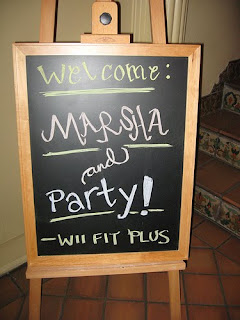 Welcome:
MARSHA
and
Party!
- WII FIT PLUS